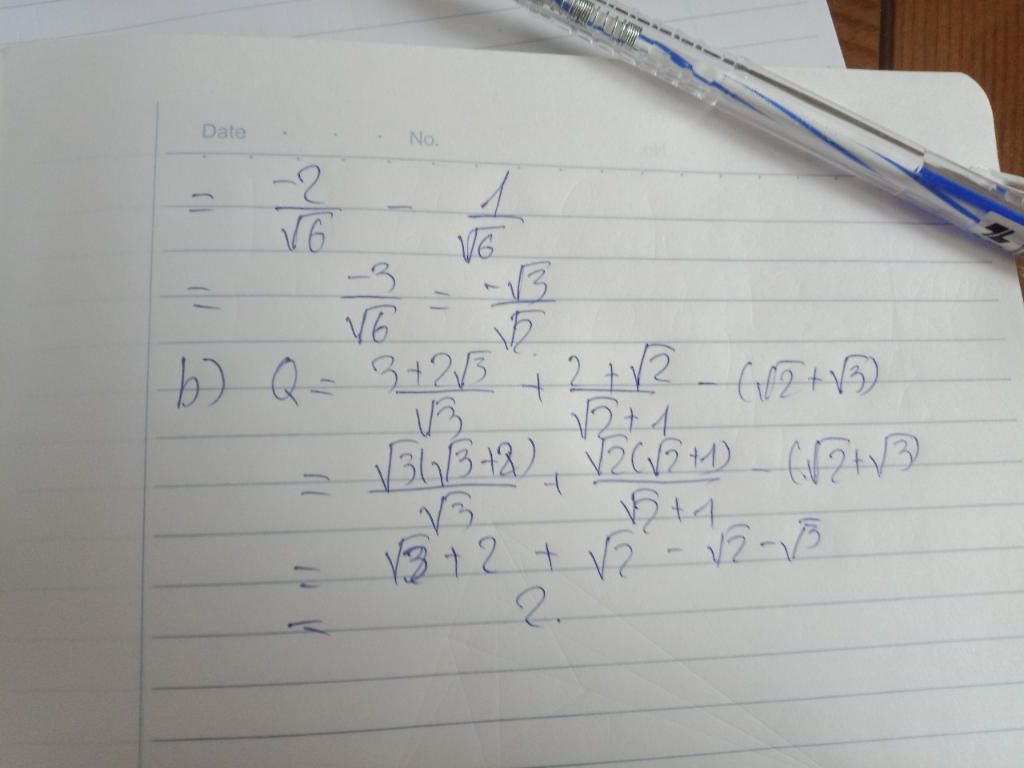 Date No.
= -2/√6 - 1/√6
= -3/√6 = -√3/√2
b) Q = (3+2√3)/√3 + (2+√2)/(√2+1) - (√2+√3)
= √3(√3+2)/√3 + √2(√2+1)/(√2+1) - (√2+√3)
= √3+2 + √2 - √2-√3
= 2.